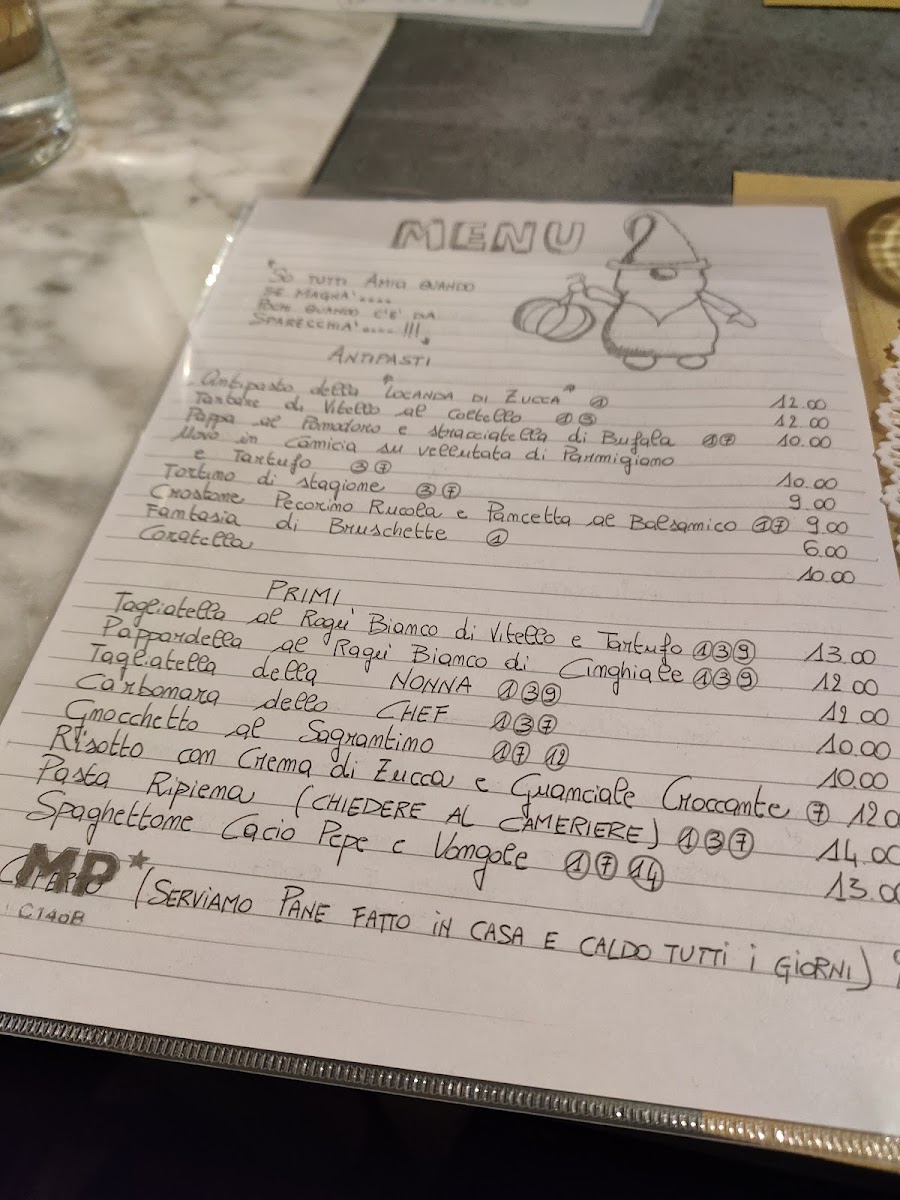 MENU
"SO TUTTI AMICI QUANDO
SE MAGNA'....
POCHI QUANDO C'E' DA
SPARECCHIA'.... !!!"
ANTIPASTI
Antipasto della "LOCANDA DI ZUCCA" ① 12.00
Tartare di Vitello al coltello ①③ 12.00
Pappa al Pomodoro e stracciatella di Bufala ①⑦ 10.00
Uovo in Camicia su vellutata di Parmigiano
e Tartufo ③⑦ 10.00
Tortino di stagione ③⑦ 9.00
Crostone Pecorino Rucola e Pancetta al Balsamico ①⑦ 9.00
Fantasia di Bruschette ① 6.00
Coratella 10.00
PRIMI
Tagliatella al Ragu' Bianco di Vitello e Tartufo ①③⑨ 13.00
Pappardella al Ragu' Bianco di Cinghiale ①③⑨ 12.00
Tagliatella della NONNA ①③⑨ 12.00
Carbonara dello CHEF ①③⑦ 10.00
Gnocchetto al Sagrantino ①⑦⑫ 10.00
Risotto con Crema di Zucca e Guanciale Croccante ⑦ 12.0
Pasta Ripiena (CHIEDERE AL CAMERIERE) ①③⑦ 14.00
Spaghettone Cacio Pepe e Vongole ①⑦⑭ 13.0
COPERTO (SERVIAMO PANE FATTO IN CASA E CALDO TUTTI I GIORNI)
MP
C140B